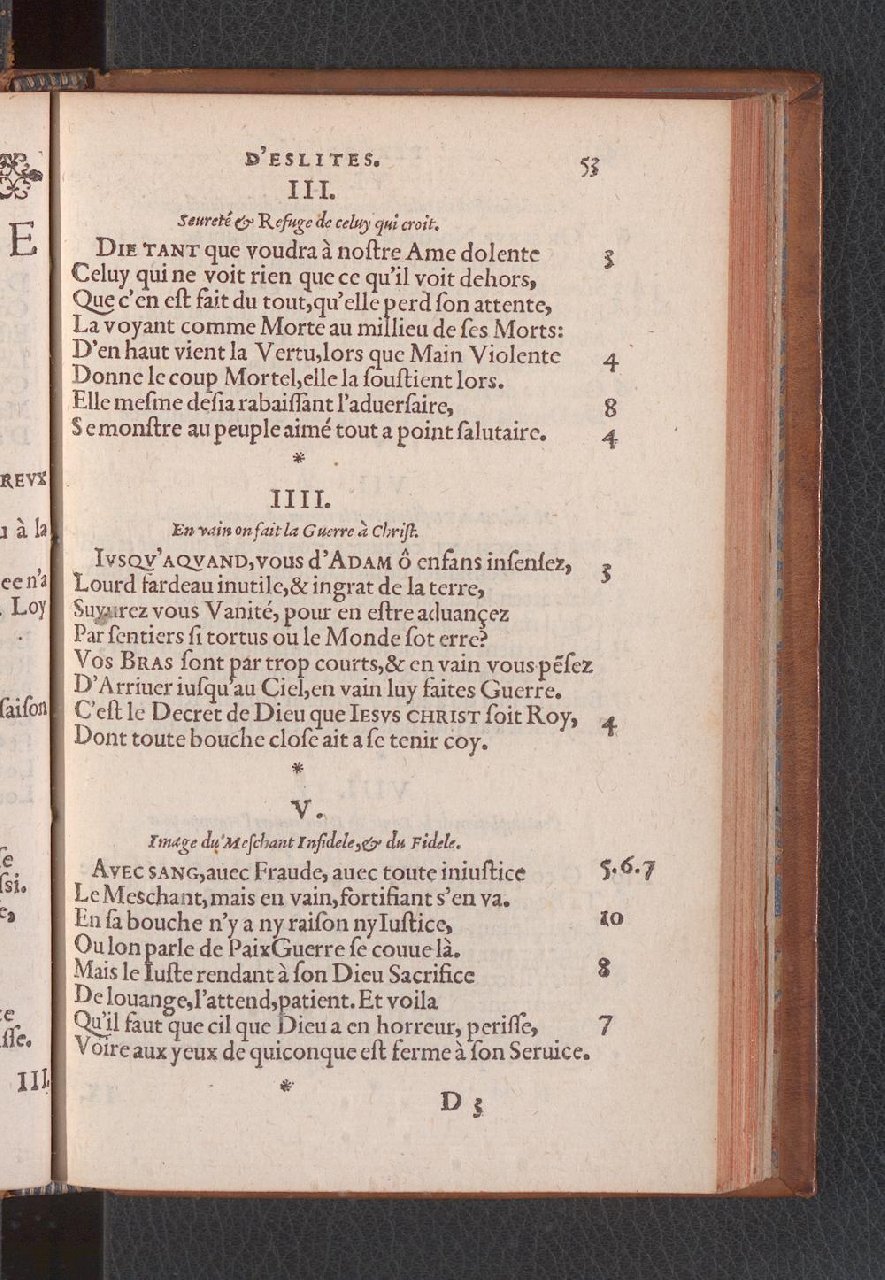 E
REVX
u à la
ee n'a
. Loy
saiſon
ſe
ſsi.
ce
iſſe.
III.
D'ESLITES. 53
III.
Seureté & Refuge de celuy qui croit.
DIE TANT que voudra à noſtre Ame dolente 3
Celuy qui ne voit rien que ce qu'il voit dehors,
Que c'en eſt fait du tout, qu'elle perd ſon attente,
La voyant comme Morte au millieu de ſes Morts:
D'en haut vient la Vertu, lors que Main Violente 4
Donne le coup Mortel, elle la ſouſtient lors.
Elle meſme deſia rabaiſſant l'aduerſaire, 8
Se monſtre au peuple aimé tout a point ſalutaire. 4
*
IIII.
En vain on fait la Guerre à Chriſt.
IVSQV'AQVAND, vous d'ADAM ô enfans inſenſez, 3
Lourd fardeau inutile, & ingrat de la terre,
Suyurez vous Vanité, pour en eſtre aduançez
Par ſentiers ſi tortus ou le Monde ſot erre?
Vos BRAS ſont par trop courts, & en vain vous pẽſez
D'Arriuer iuſqu'au Ciel, en vain luy faites Guerre.
C'eſt le Decret de Dieu que IESVS CHRIST ſoit Roy, 4
Dont toute bouche cloſe ait a ſe tenir coy.
*
V.
Image du Meſchant Infidele, & du Fidele.
AVEC SANG, auec Fraude, auec toute iniuſtice 5.6.7
Le Meschant, mais en vain, fortifiant s'en va.
En ſa bouche n'y a ny raiſon ny Iuſtice, 10
Ou lon parle de Paix Guerre ſe couue là.
Mais le Iuſte rendant à ſon Dieu Sacrifice 8
De louange, l'attend, patient. Et voila
Qu'il faut que cil que Dieu a en horreur, periſſe, 7
Voire aux yeux de quiconque eſt ferme à ſon Seruice.
*
D 3